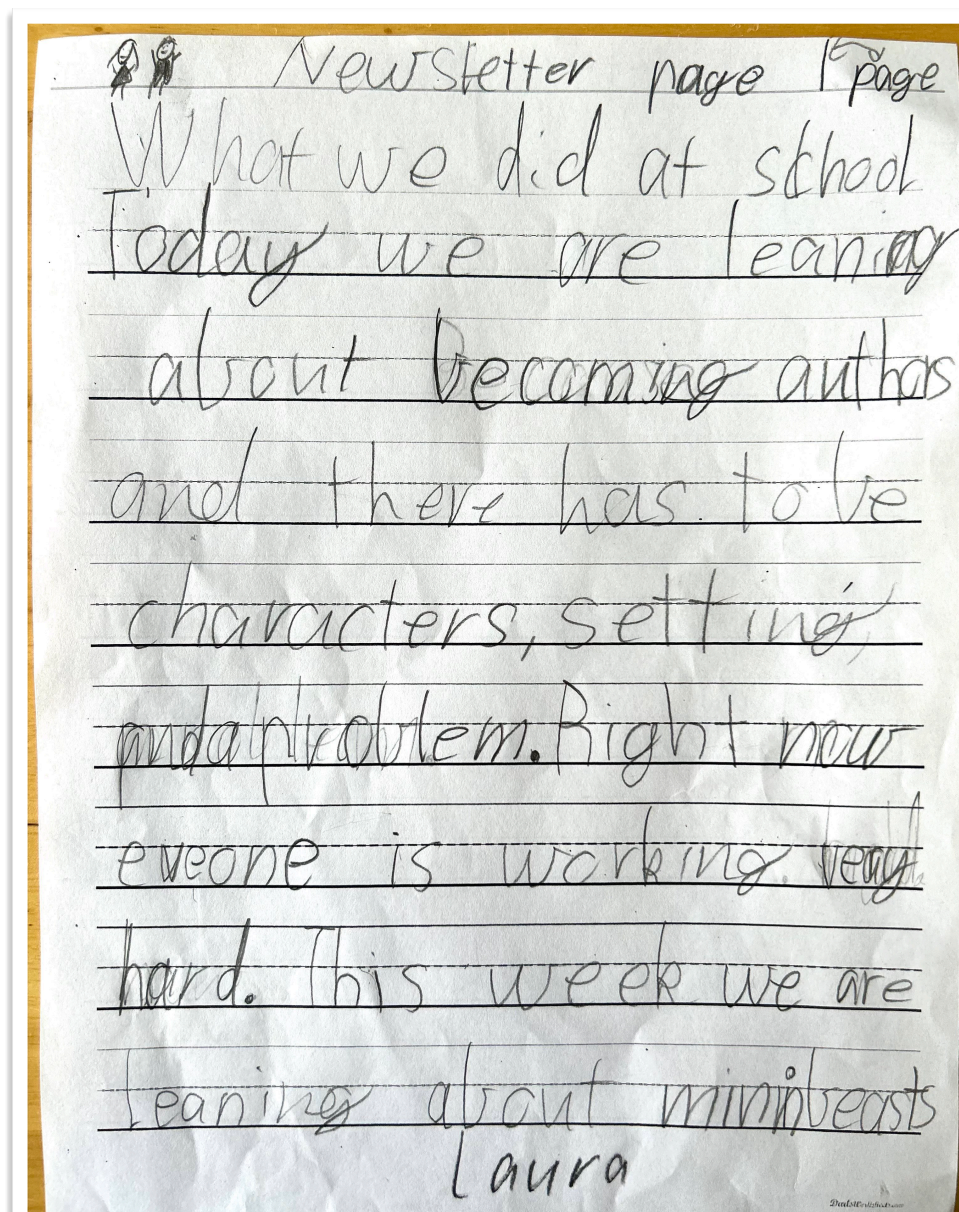 Newsletter page 1 page
What we did at school
Today we are leaning
about becoming authos
and there has to be
characters, setting,
and a problem. Right now
eveone is working veay
hard. This week we are
leaning about mininbeasts
Laura